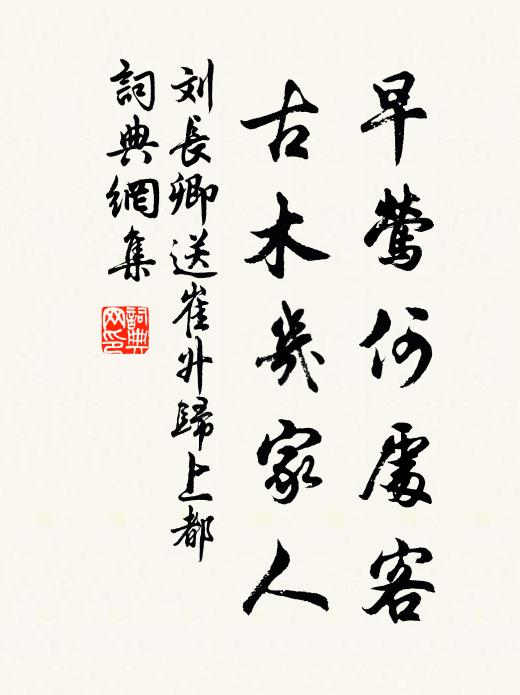 早鶯何處客
古木幾家人
刘長卿送崔升歸上都
詞典網集
詞典网印